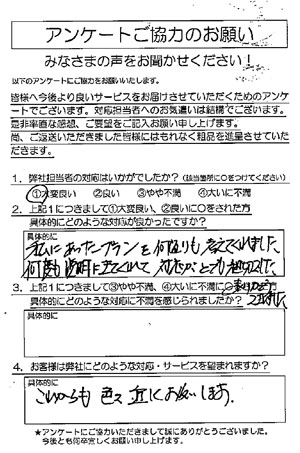 アンケートご協力のお願い
みなさまの声をお聞かせください！
以下のアンケートにご協力をお願いいたします。
皆様へ今後より良いサービスをお届けさせていただくためのアンケ
ートでございます。対応担当者へのお気遣いは結構でございます。
是非率直な感想、ご要望をご記入お願い申し上げます。
尚、ご返送いただきました皆様にはもれなく粗品を進呈させていた
だきます。
1．弊社担当者の対応はいかがでしたか？（該当箇所に○をつけてください）
①大変良い ②良い ③やや不満 ④大いに不満
2．上記1につきまして①大変良い、②良いに○をされた方
具体的にどのような対応が良かったですか？
具体的に
私にあったプランを何なりも考えてくれました。
何度も説明に来てくれて 対応が とても
3．上記1につきまして③やや不満、④大いに不満に
具体的にどのような対応に不満を感じられましたか？
具体的に
4．お客様は弊社にどのような対応・サービスを望まれますか？
具体的に
これからも 色々 宜しくお願いします。
★アンケートにご協力いただきまして誠にありがとうございました。
今後とも何卒宜しくお願い申し上げます。